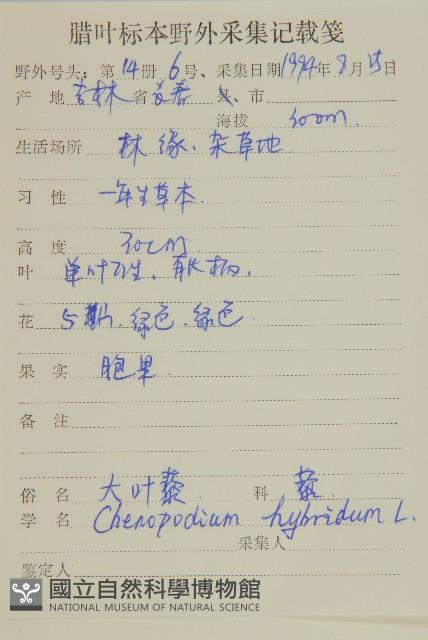 腊叶标本野外采集记载笺
野外号头：第14册6号、采集日期1994年8月15日
产 地 吉林省 长春 县、市
海拔 200m.
生活场所 林缘、杂草地
习 性 一年生草本.
高 度 70cm
叶 单叶互生、有长柄.
花 5数、绿色、绿色.
果 实 胞果.
备 注
俗 名 大叶藜 科 藜
学 名 Chenopodium hybridum L.
采集人
鉴定人
國立自然科學博物館
NATIONAL MUSEUM OF NATURAL SCIENCE